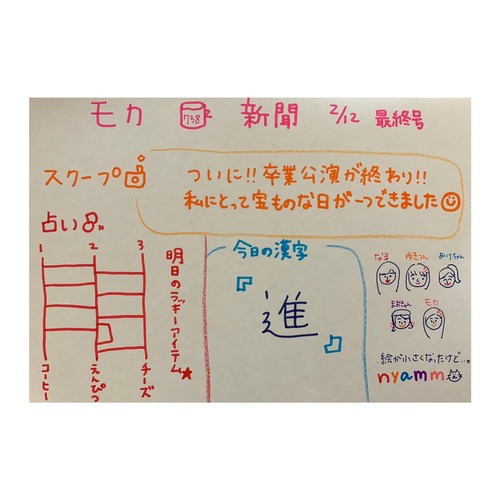 モカ 738 新聞 2/12 最終号
スクープ
ついに!! 卒業公演が終わり!!
私にとって宝ものな日が一つできました
占い
1 2 3
コーヒー えんぴつ チーズ
明日のラッキーアイテム
今日の漢字
『進』
なる ゆきつん おりちゃん
モカ
絵が小さくなったけど...。
nyamm